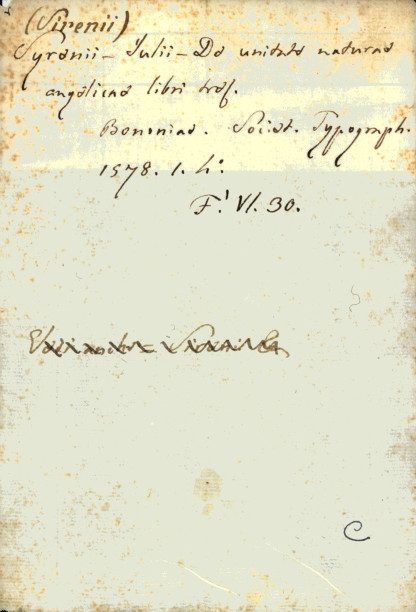 (Sirenii)
Syrenii – Iulii – De unitate naturae
angelicae libri tres.
Bononiae. Societ. Typograph.
1578. 1. 4°.
F.' VI. 30.
C